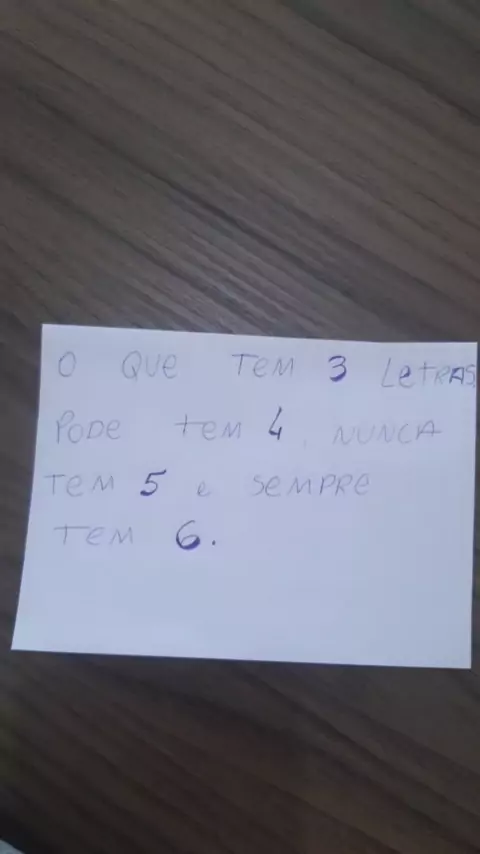 O QUE TEM 3 LETRAS
PODE TEM 4, NUNCA
TEM 5 e SEMPRE
TEM 6.